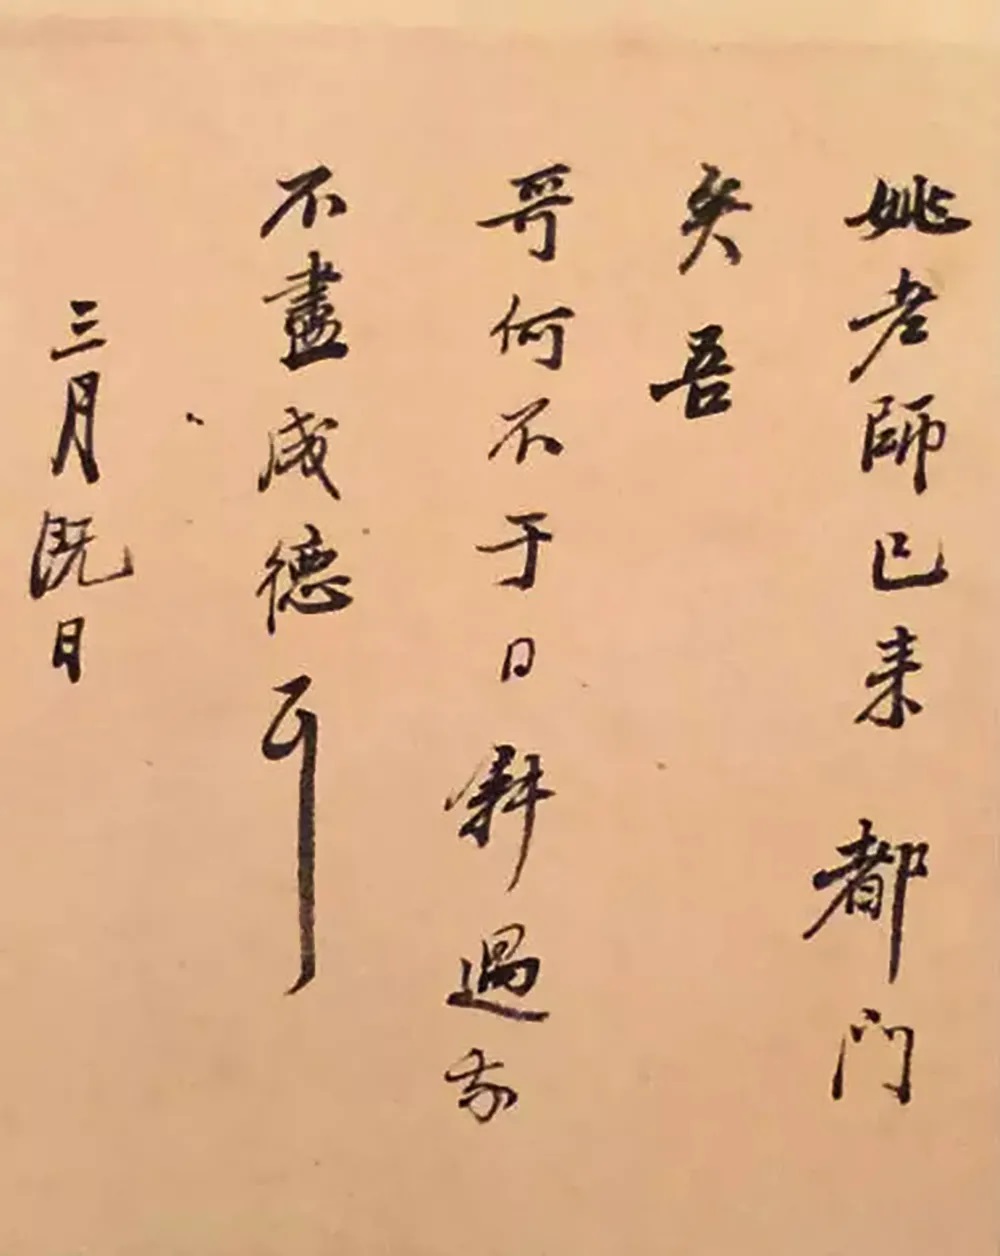 姚老師已来都门
矣吾
哥何不于日斜過我
不盡成德頓首
三月既日